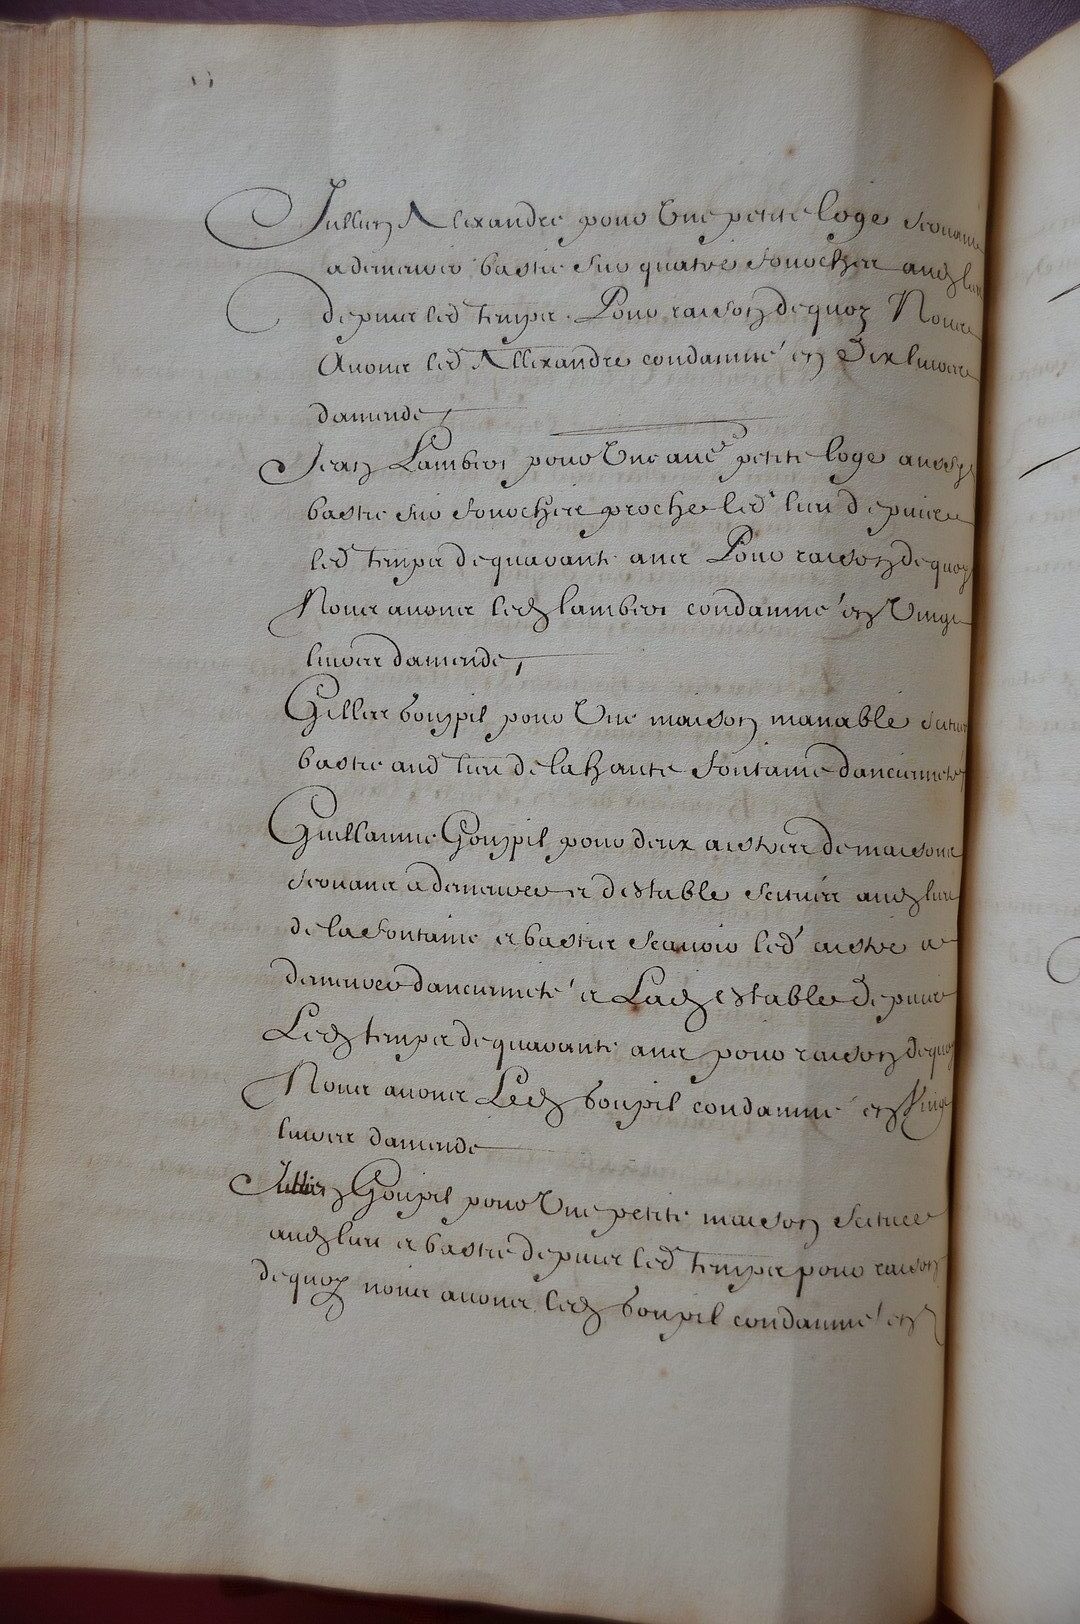 Jullien Allexandre pour Une petite loge servant
a demeurer bastie sur quatre fourches aud lieu
depuis led temps. Pour raison dequoy Nous
Avons led Allexandre condamné en Dix livres
damende
Jean Lambert pour Une autre petite loge aussy
bastie sur fourches proche led lieu depuis
led temps de quarante ans Pour raison dequoy
Nous avons led lambert condamné en Vingt
livres damende
Gilles Goupil pour Une maison manable scituee
bastie aud lieu de la haute fontaine dancienneté
Guillaume Goupil pour deux aistres de maisons
servans a demeurer et destable scituez aud lieu
de la fontaine et bastis scavoir led aistre a
demeurer dancienneté et Lad estable Depuis
Led temps de quarante ans pour raison dequoy
Nous avons Led Goupil condamné en Vingt
livres damende
Jullien Goupil pour Une petite maison scituee
aud lieu et bastie depuis led temps pour raison
dequoy nous avons led Goupil condamné en